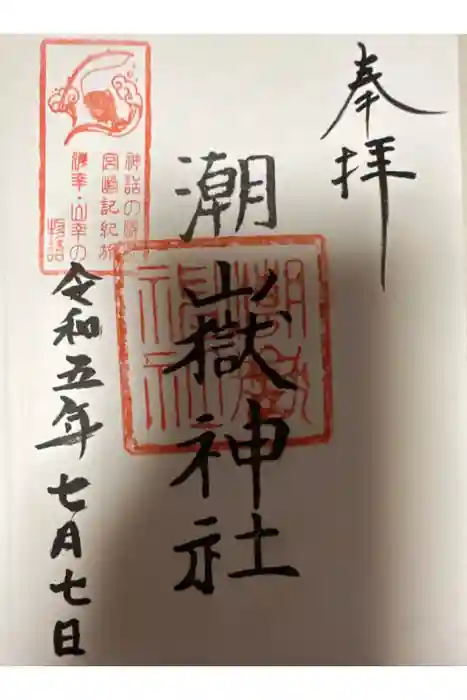 奉拝
潮嶽神社
令和五年七月七日
神話の源流
宮崎記紀旅
海幸・山幸の
物語
潮嶽神社